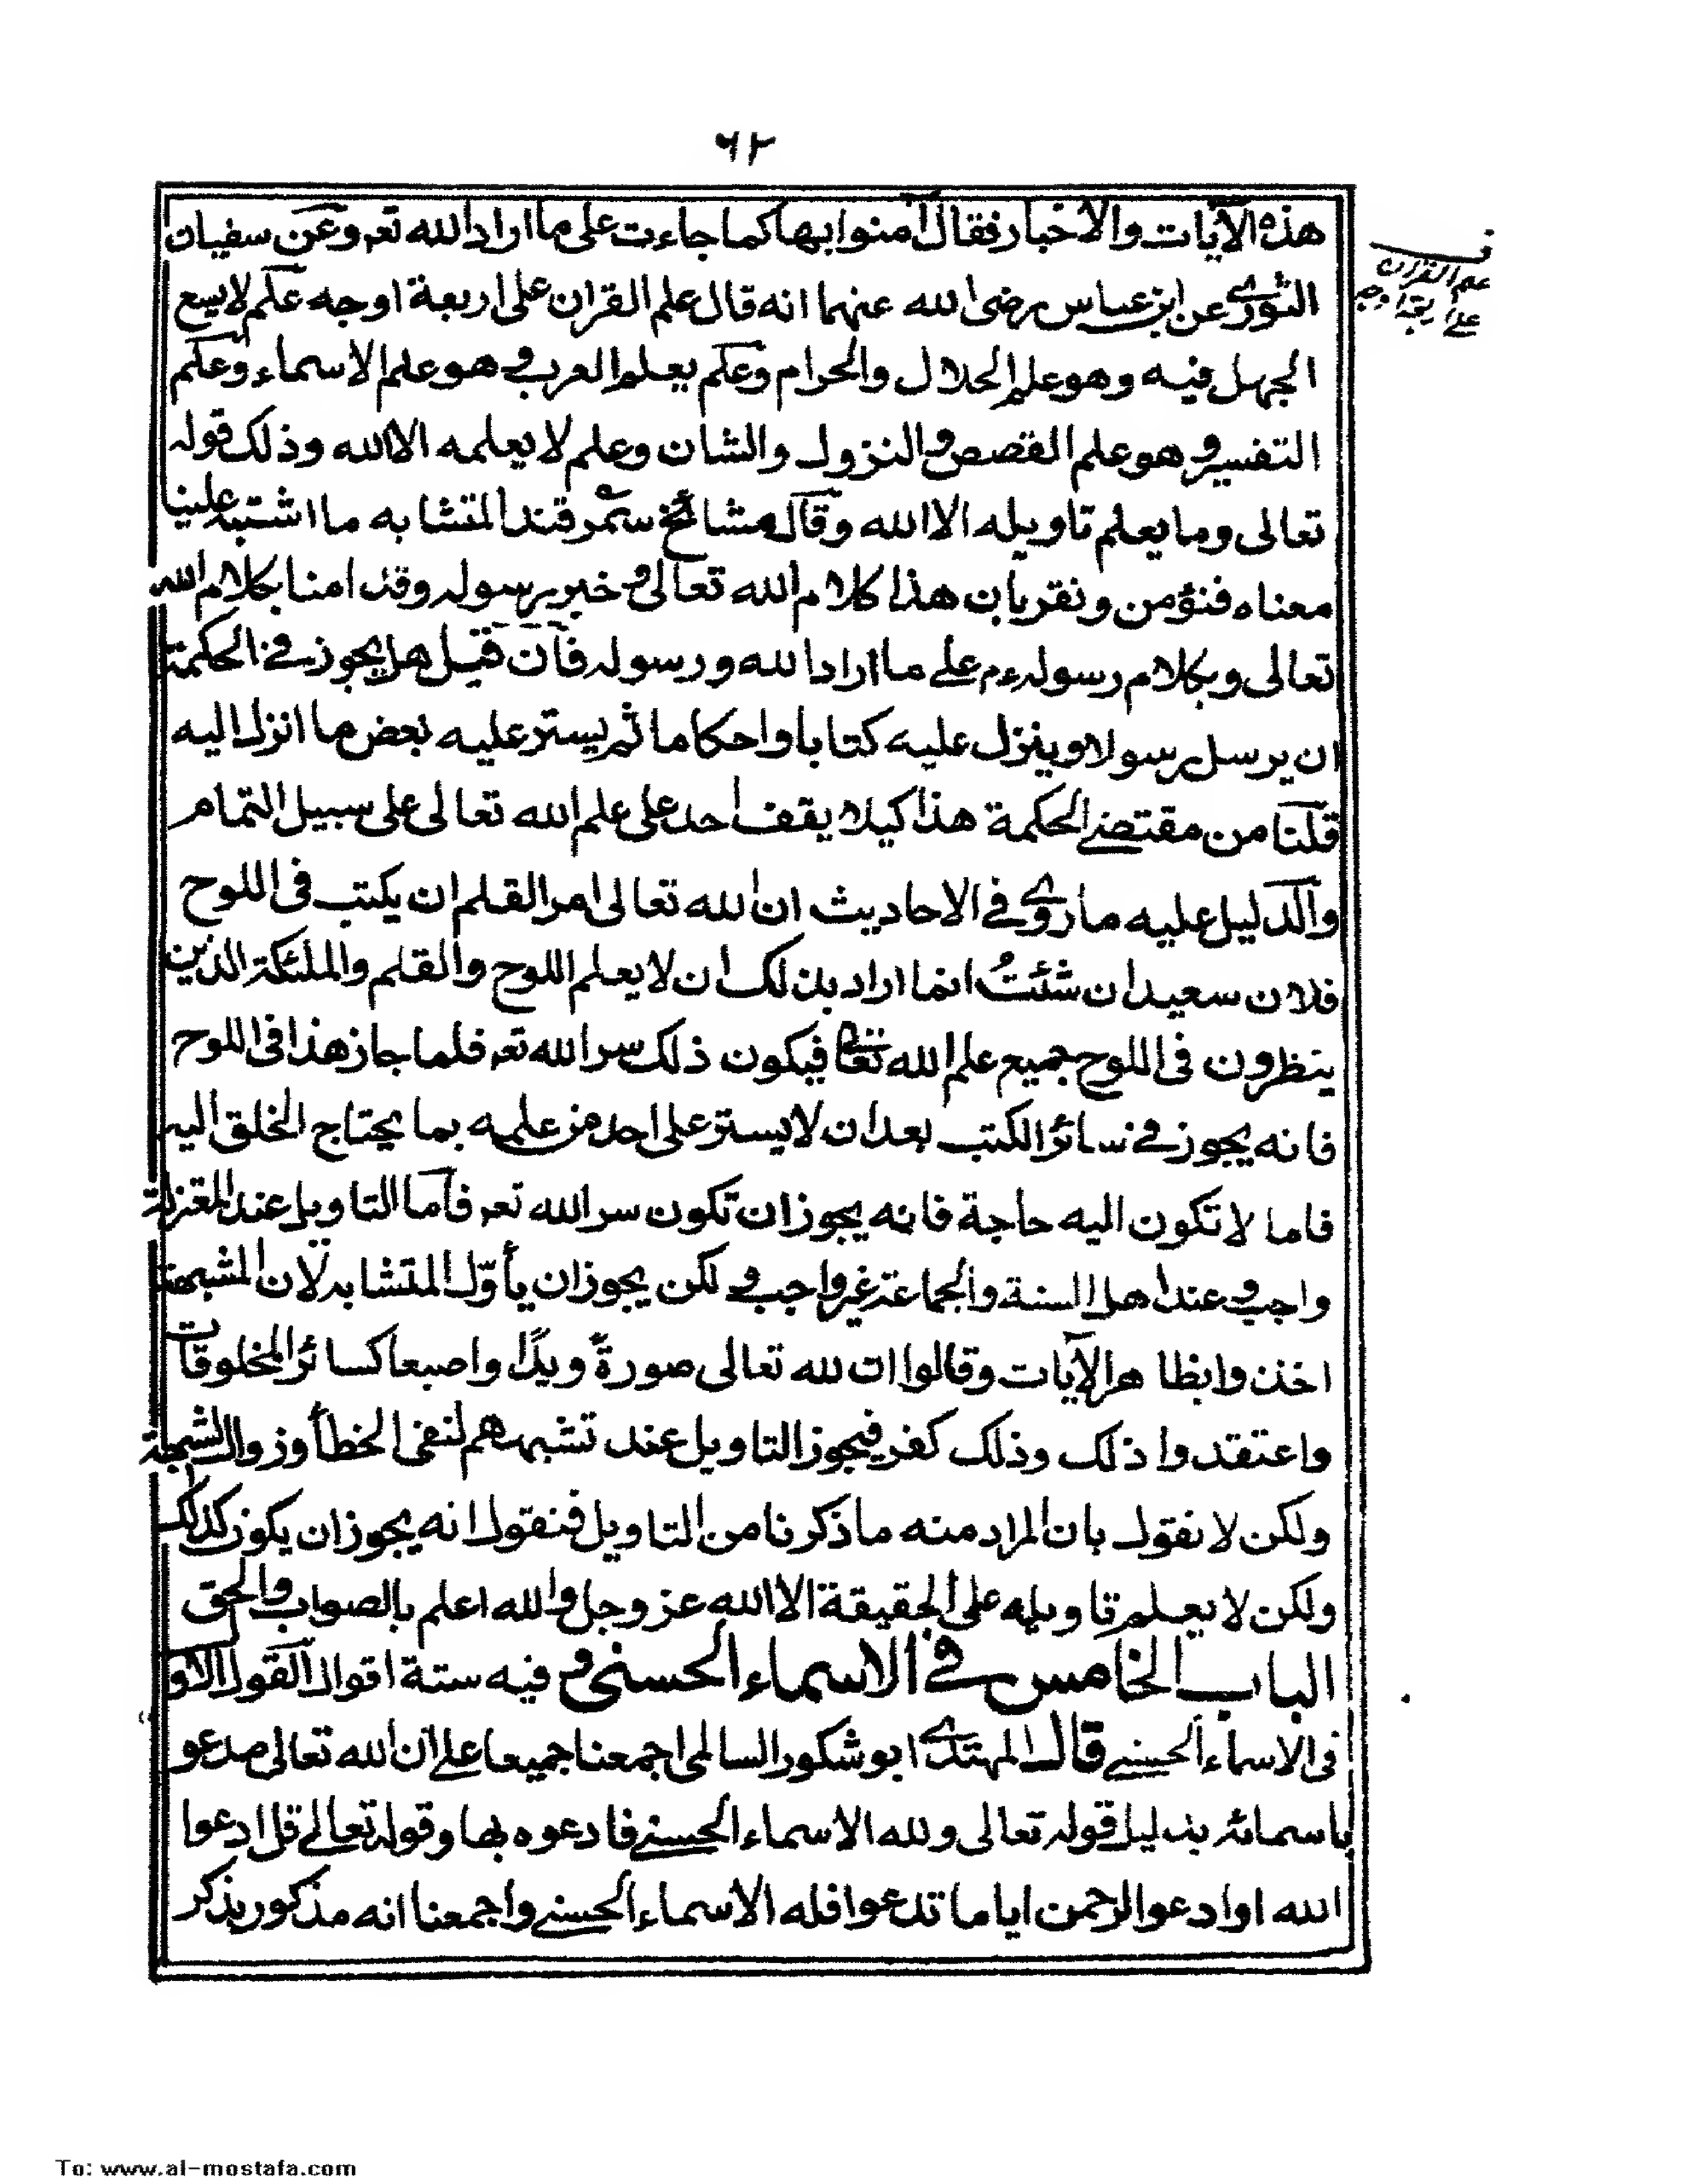 ٦٢
هذه الآيات والاخبار فقال آمنوا بها كما جاءت على ما اراد الله تعه وعن سفيان
علم القران
على اربعة اوجه
الثوري عن ابن عباس رضى الله عنهما انه قال علم القران على اربعة اوجه علم لا يسع
الجهل فيه وهو علم الحلال والحرام وعلم يعلم العرب وهو علم الاسماء وعلم
التفسير وهو علم القصص والنزول والشان وعلم لا يعلمه الا الله وذلك قوله
تعالى وما يعلم تاويله الا الله وقال مشائخ سمرقند المتشابه ما اشتبه علينا
معناه فنؤمن ونقر بان هذا كلام الله تعالى وخبر رسوله وقد امنا بكلام الله
تعالى وبكلام رسوله ءم على ما اراد الله ورسوله فان قيل هل يجوز في الحكمة
ان يرسل رسولا وينزل عليه كتابا واحكاما ثم يستر عليه بعض ما انزل اليه
قلنا من مقتضى الحكمة هذا كيلا يقف احد على علم الله تعالى على سبيل التمام
والدليل عليه ما روي في الاحاديث ان الله تعالى امر القلم ان يكتب فى اللوح
فلان سعيد ان شئتُ انما اراد بذلك ان لا يعلم اللوح والقلم والملئكة الذين
ينظرون فى اللوح جميع علم الله تعالى فيكون ذلك سر الله تعه فلما جاز هذا فى اللوح
فانه يجوز في سائر الكتب بعد ان لا يستر على احد من علمه بما يحتاج الخلق اليه
فاما لا تكون اليه حاجة فانه يجوز ان تكون سر الله تعه فاما التاويل عند المعتزلة
واجب وعند اهل السنة والجماعة غير واجب ولكن يجوز ان يأوّل المتشابه لان المشبهة
اخذوا بظاهر الآيات وقالوا ان لله تعالى صورةً ويدًا واصبعا كسائر المخلوقات
واعتقدوا ذلك وذلك كفر فيجوز التاويل عند تشبههم لنفى الخطأ وزوال الشبهة
ولكن لا نقول بان المراد منه ما ذكرنا من التاويل فنقول انه يجوز ان يكون كذلك
ولكن لا يعلم تاويله على الحقيقة الا الله عز وجل والله اعلم بالصواب والحق
الباب الخامس في الاسماء الحسنى وفيه ستة اقوال القول الاول
فى الاسماء الحسنى قال المهتدي ابو شكور السالمى اجمعنا جميعا على ان الله تعالى مدعو
باسمائه بدليل قوله تعالى ولله الاسماء الحسنى فادعوه بها وقوله تعالى قل ادعوا
الله او ادعوا الرحمن اياما تدعوا فله الاسماء الحسنى واجمعنا انه مذكور بذكر
To: www.al-mostafa.com